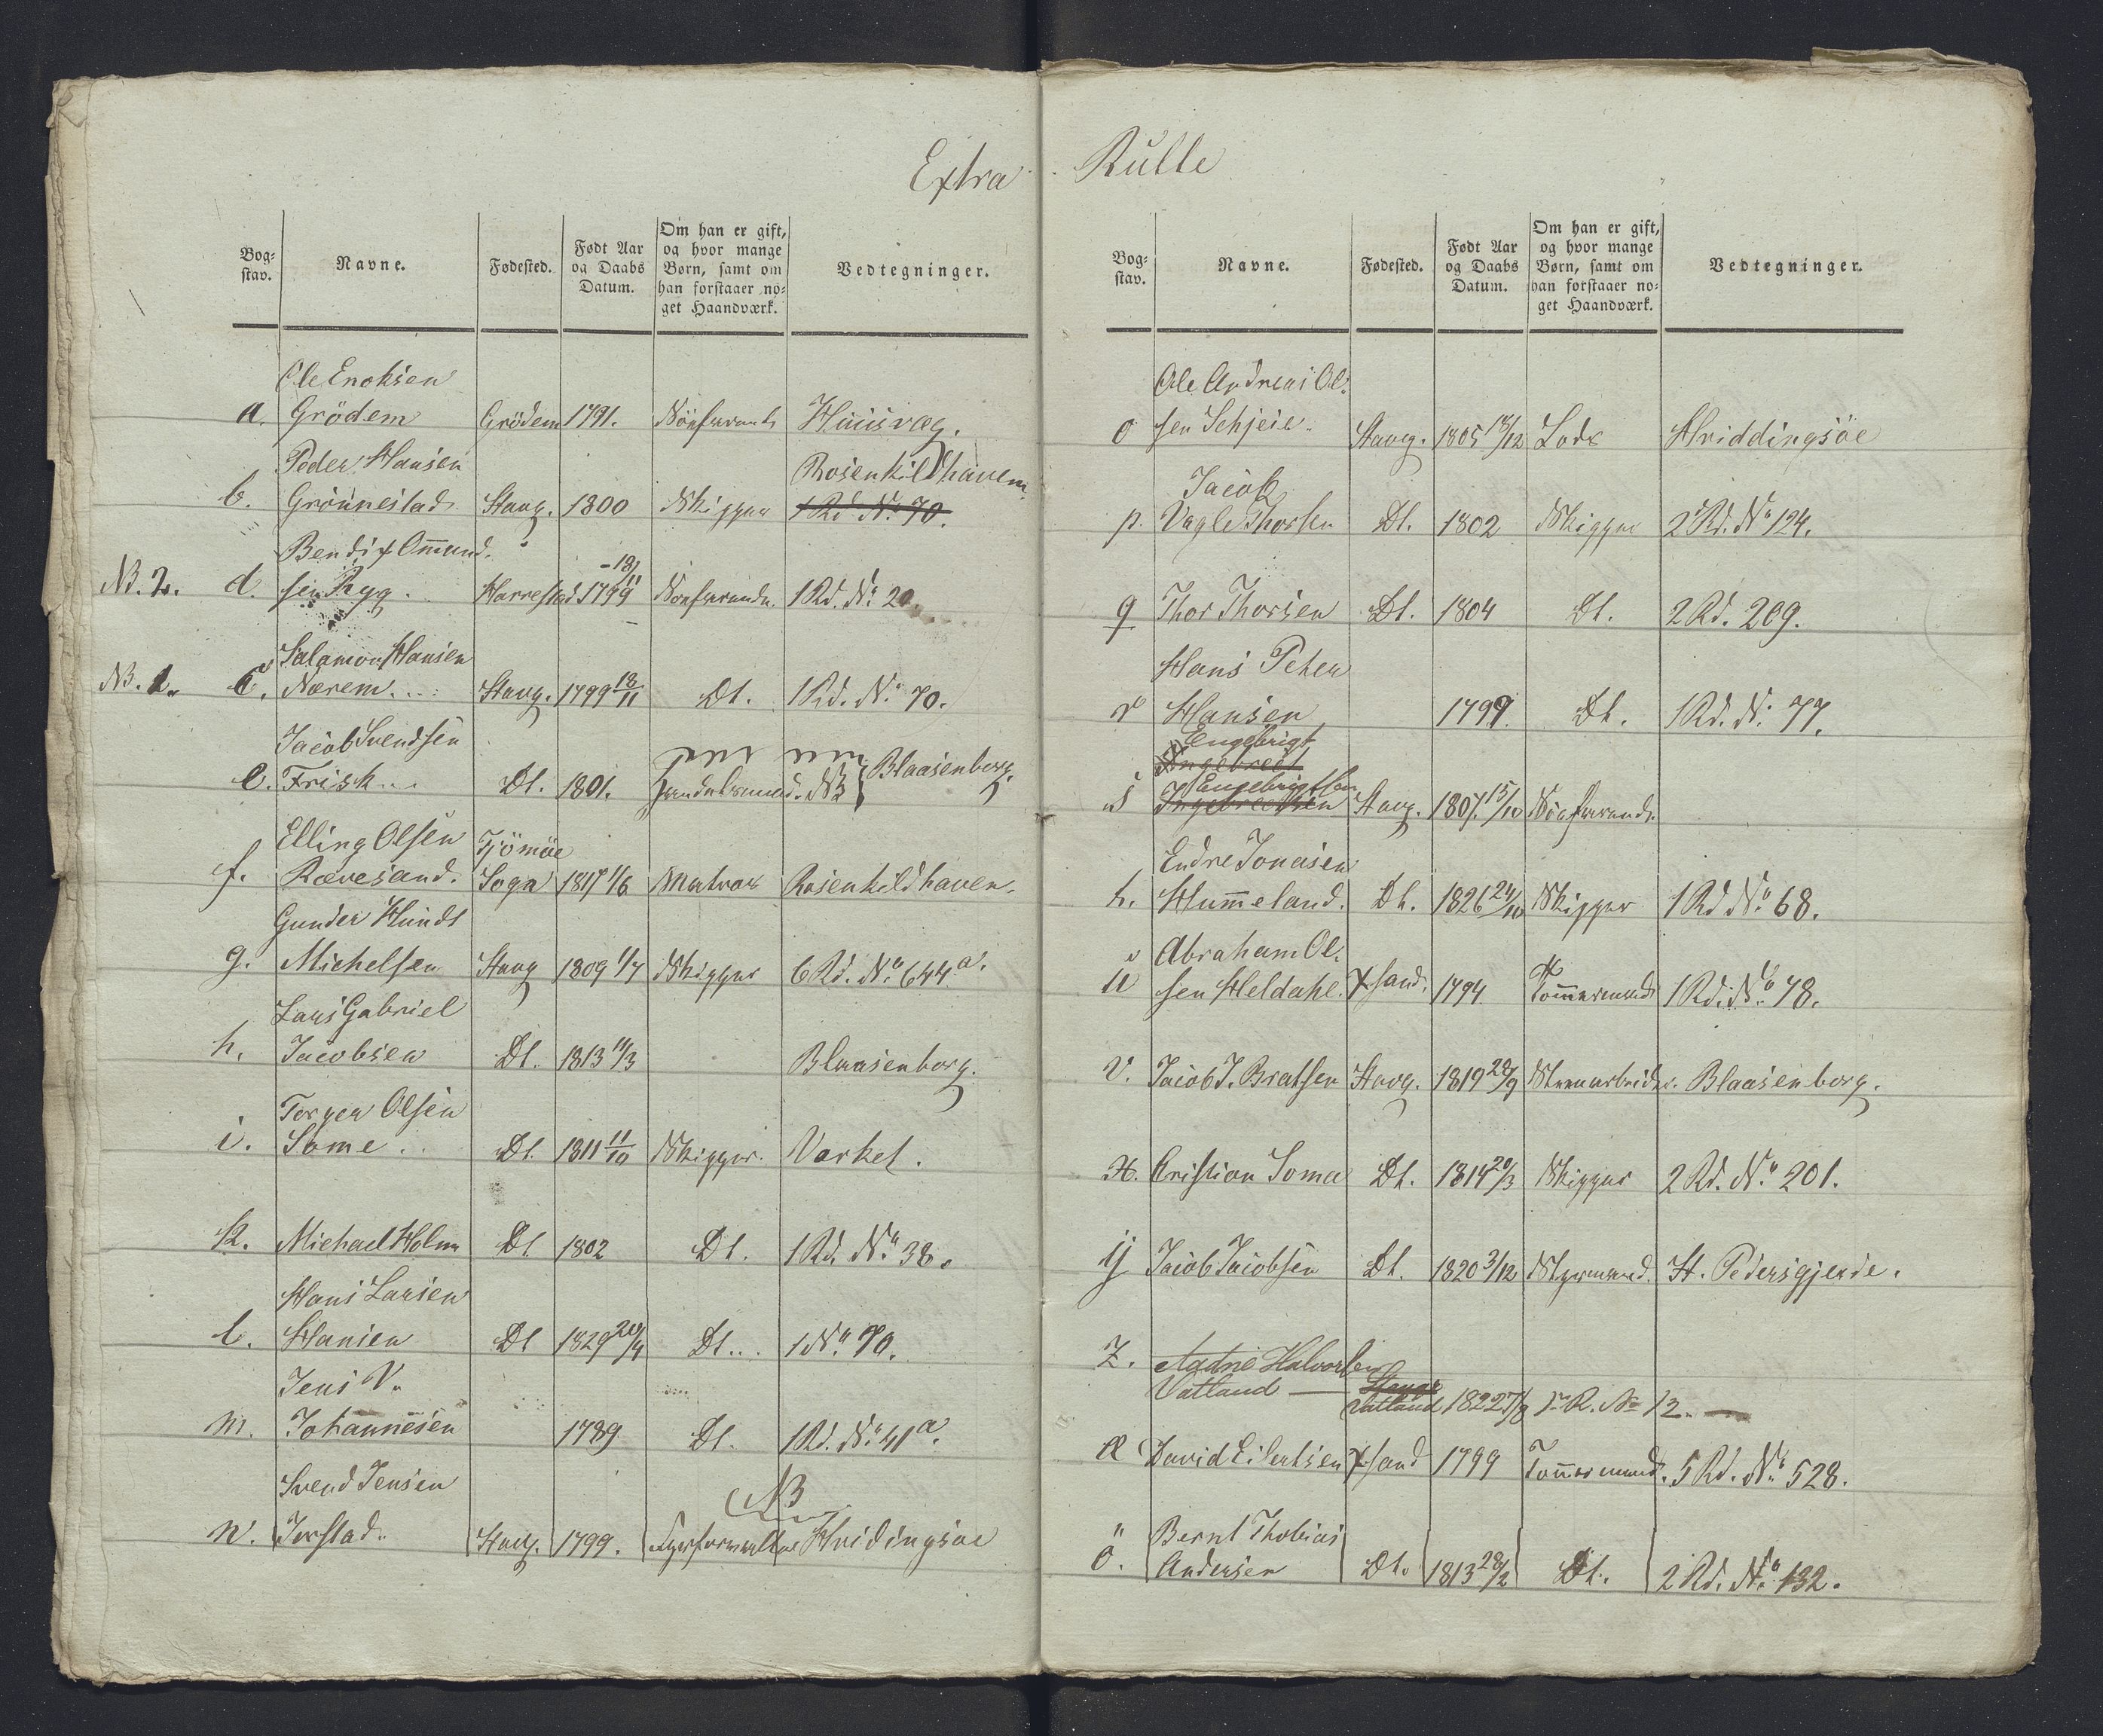 Extra Rulle
Bog-
stav.
Navne.
Fødested.
Født Aar
og Daabs
Datum.
Om han er gift,
og hvor mange
Børn, samt om
han forstaaer no-
get Haandværk.
Vedtegninger.
Ole Enoksen
a. Grödem Grödem 1791. Huusvag.
Peder Hansen Rosenkildhaven
b. Grönnestad Stavg. 1800 Skipper 1 Rd. No. 70.
Bendix Omund- 18/11
NB. 2. d. sen Ryg. Harrestad 1799 1 Rd. No. 20.
Salamon Hansen
NB. 1. c. Nærem.... Stavg. 1799 18/11 Dt. 1 Rd. No. 70.
Jacob Svendsen
e. Frisk... Dt. 1801. Handelsmand. NB Blaasenborg.
Elling Olsen Tjömöe
f. Rævesand. Sogn 1817 1/6 Matros Rosenkildhaven.
Gunder Hundt
g. Michelsen Stavg 1809 1/7 Skipper 6 Rd. No. 644 a.
Lars Gabriel
h. Jacobsen Dt. 1813 14/3 Blaasenborg.
Torger Olsen
i. Some.. Dt. 1811 11/10 Skipper. Varket.
k. Michael Holm Dt 1802 Dt. 1 Rd. No. 38.
Hans Larsen
l. Hansen Dt 1829 20/4 Dt... 1 No. 70.
Jens V.
m. Johannesen 1789 Dt. 1 Rd. No. 41 a.
Svend Jensen NB
n. Jorstad.. Stavg. 1799. Fyrforvalter Hvidingsøe
Bog-
stav.
Navne.
Fødested.
Født Aar
og Daabs
Datum.
Om han er gift,
og hvor mange
Børn, samt om
han forstaaer no-
get Haandværk.
Vedtegninger.
Ole Andreas Ol-
o sen Schjeie. Stavg. 1805 18/12 Lods Hviddingsöe
Jacob
p. Vagle Thorsen Dt. 1802 Skipper 2 Rd. No. 124.
q Thor Thorsen Dt. 1804 Dt. 2 Rd. 209.
Hans Peter
r Hansen 1799. Dt. 1 Rd. No. 77.
Engebrigt
Ingebrect
Engebrigtsen
s Ingebrectsen Stavg. 1807. 15/10
Endre Jonasen
t. Hummeland. Dt. 1826 24/10 Skipper 1 Rd No. 68.
Abraham Ol-
u sen Heldahl. Xsand. 1794 Tömmermand 1 Rd. No. 78.
v. Jacob J. Bratsen Stavg. 1819 28/9 Blaasenborg.
x. Cristian Soma Dt. 1814 20/3 Skipper 2 Rd. No. 201.
y Jacob Jacobsen Dt. 1820 3/12 Styrmand. St. Pedersgjerde.
Z. Aadne Halvorsen Stavgr
Vatland — Vatland 1822 7/8 1ste R. No 12. —
Æ David Eilertsen Xsand 1799 Tömmermand. 5 Rd. No. 528.
Bernt Thobias
ö. Andersen Dt. 1813 28/2 Dt. 2 Rd. No. 132.